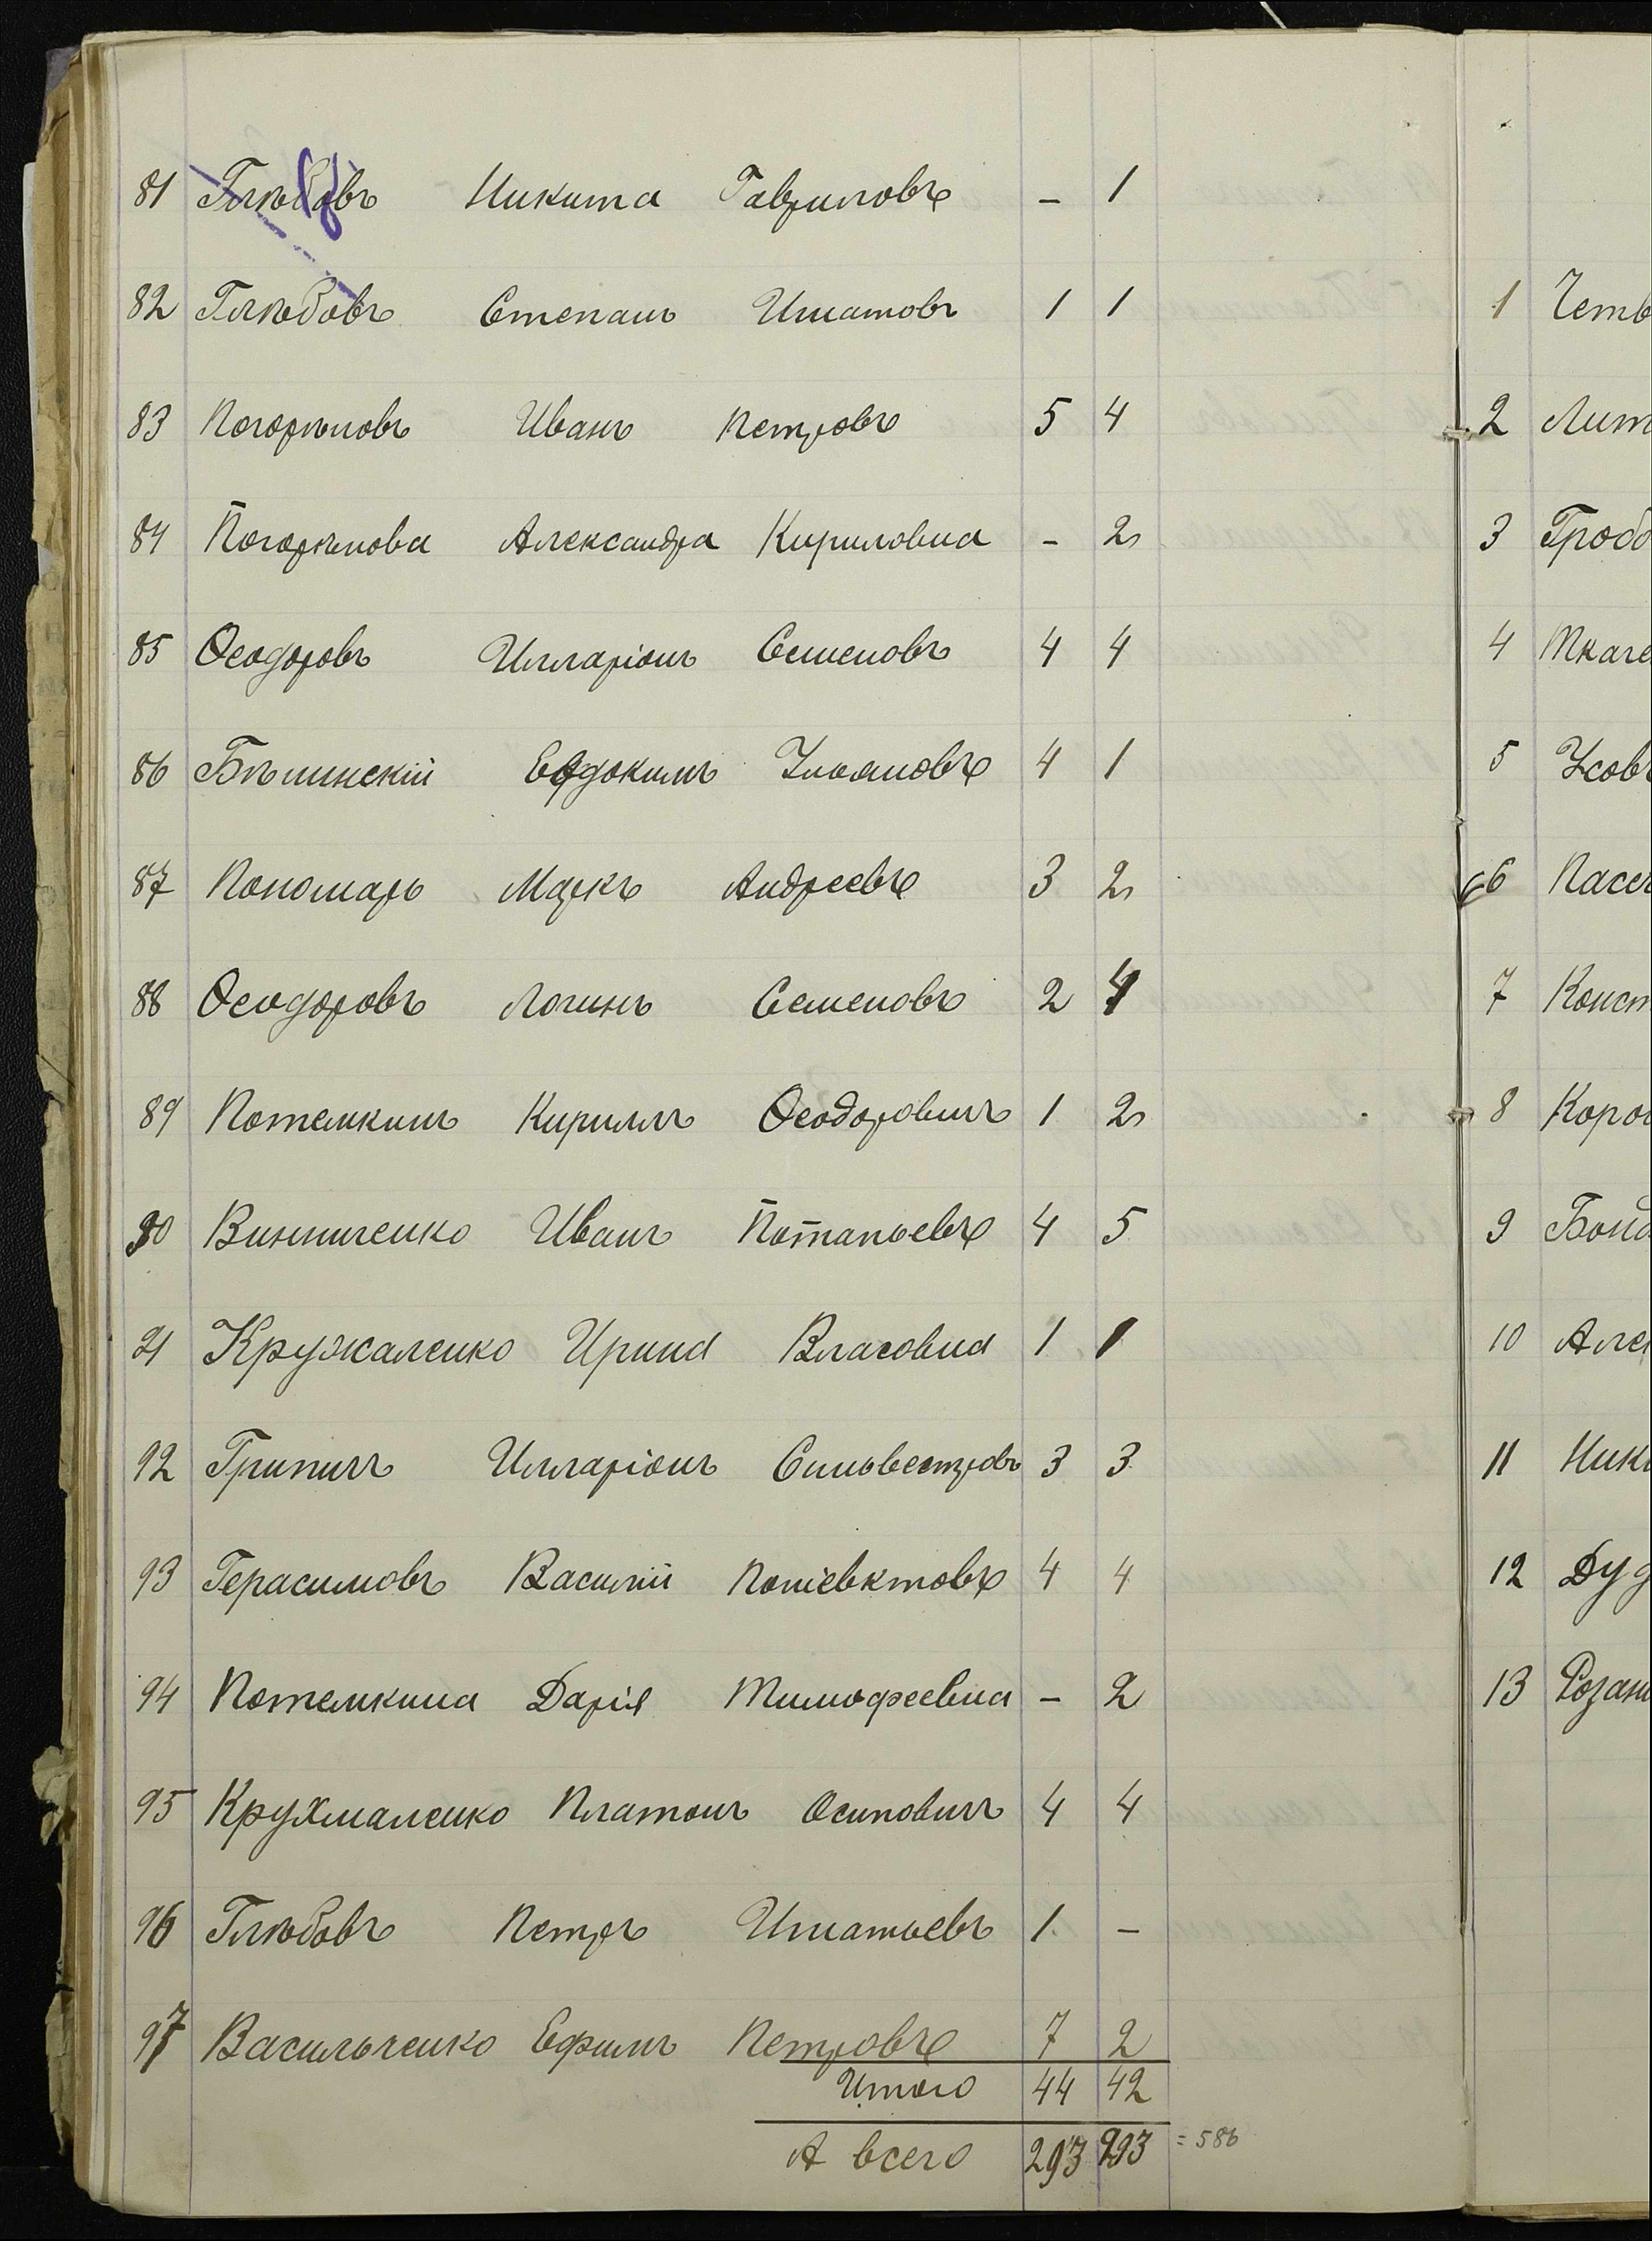 81 Глѣбовъ Никита Гавриловъ – 1
82 Глѣбовъ Степанъ Игнатовъ 1 1
83 Погорѣловъ Иванъ Петровъ 5 4
84 Погорѣлова Александра Кириловна – 2
85 Ѳеодоровъ Илларіонъ Семеновъ 4 4
86 Бѣлинскій Евдокимъ Ульяновъ 4 1
87 Пономарь Маркъ Андреевъ 3 2
88 Ѳеодоровъ Логинъ Семеновъ 2 4
89 Потемкинъ Кириллъ Ѳеодоровичъ 1 2
90 Винниченко Иванъ Потапьевъ 4 5
91 Кружаленко Ирина Власовна 1 1
92 Грипичъ Илларіонъ Сильвестровъ 3 3
93 Герасимовъ Василій Поліевктовъ 4 4
94 Потемкина Дарія Тимофеевна – 2
95 Крухмаленко Платонъ Осиповичъ 4 4
96 Глѣбовъ Петръ Игнатьевъ 1 –
97 Васильченко Ефимъ Петровъ 7 2
Итого 44 42
А всего 293 293 = 586
1 Четв
2 Лит
3 Гробо
4 Ткаче
5 Усовъ
6 Пасеч
7 Конст
8 Коро
9 Бонд
10 Але
11 Ник
12 Дуд
13 Розан